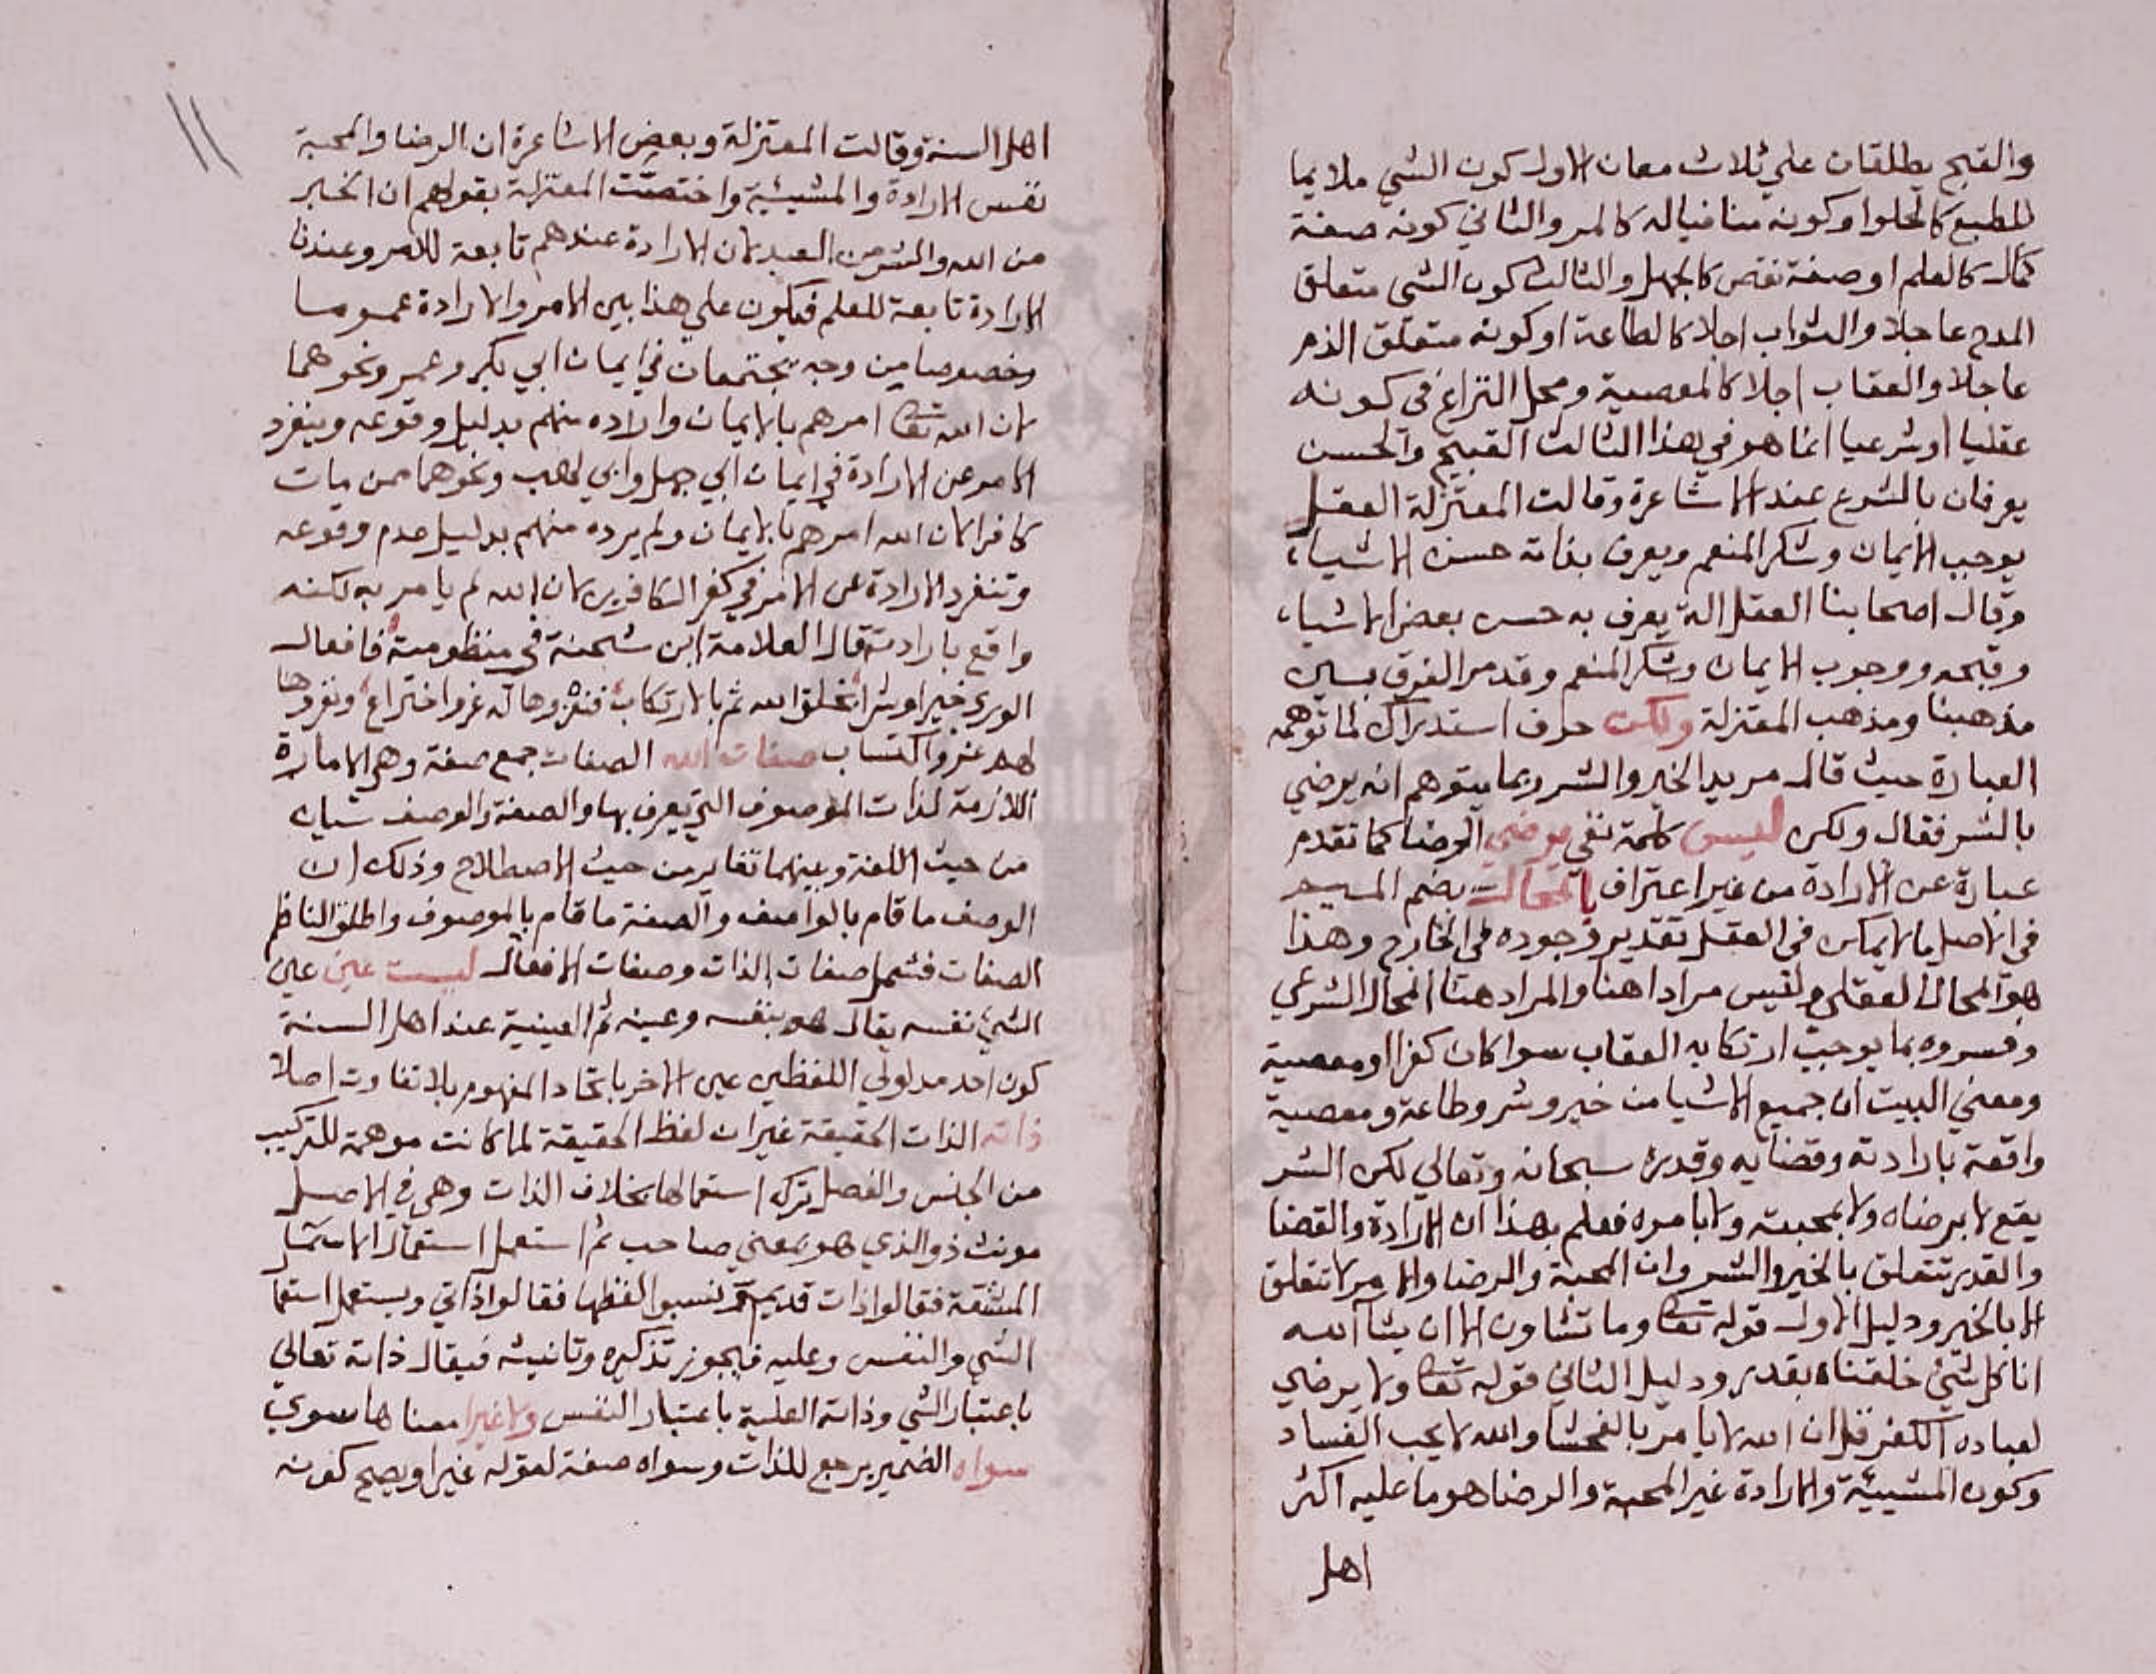 والقبح يطلقان علي ثلاث معان الاول كون الشي ملايما
للطبع كالحلوا وكونه منافيا له كالمر والثاني كونه صفة
كمال كالعلم او صفة نقص كالجهل والثالث كون الشي متعلق
المدح عاجلا والثواب اجلا كالطاعة او كونه متعلق الذم
عاجلا والعقاب اجلا كالمعصية ومحل النزاع في كونه
عقليا او شرعيا انما هو في هذا الثالث القبيح والحسن
يعرفان بالشرع عند الاشاعرة وقالت المعتزلة العقل
يوجب الايمان وشكر المنعم ويعرف بذاته حسن الاشياء
وقال اصحابنا العقل الة يعرف به حسن بعض الاشياء
وقبحه ووجوب الايمان وشكر المنعم وقد مر الفرق بين
مذهبنا ومذهب المعتزلة ولكن حرف استدراك لما توهمه
العبارة حيث قال مريد الخير والشر ربما يتوهم انه يرضي
بالشر فقال ولكن ليس كلمة نفي يرضي الرضا كما تقدم
عبارة عن الارادة من غير اعتراف بالمحال بضم الميم
في الاصل ما لايمكن في العقل تقدير وجوده في الخارج وهذا
هو المحال العقلي وليس مرادا هنا والمراد هنا المحال الشرعي
وفسروه بما يوجب ارتكابه العقاب سوا كان كفرا او معصية
ومعني البيت ان جميع الاشيا من خير وشر وطاعة ومعصية
واقعة بارادته وقضايه وقدره سبحانه وتعالي لكن الشر
يقع لا برضاه ولا بمحبته ولا بامره فعلم بهذا ان الارادة والقضا
والقدر تتعلق بالخير والشر وان المحبة والرضا والامر لا تتعلق
الا بالخير ودليل الاول قوله تعا وما تشاون الا ان يشآ الله
انا كل شيئ خلقناه بقدر ودليل الثاني قوله تعا ولا يرضي
لعباده الكفر قل ان الله لا يامر بالفحشا والله لا يحب الفساد
وكون المشيئة والارادة غير المحبة والرضا هو ما عليه اكثر
اهل
اهل السنة وقالت المعتزلة وبعض الاشاعرة ان الرضا والمحبة
نفس الارادة والمشيئية واختصت المعتزلة بقولهم ان الخير
من الله والشر من العبد لان الارادة عندهم تابعة للامر وعندنا
الارادة تابعة للعلم فيكون علي هذا بين الامر والارادة عموما
وخصوصا من وجه يجتمعان في ايمان ابي بكر وعمر ونحوهما
لان الله تعا امرهم بالايمان واراده منهم بدليل وقوعه وينفرد
الامر عن الارادة في ايمان ابي جهل وابي لهب ونحوهما ممن مات
كافرا لان الله امرهم بالايمان ولم يرده منهم بدليل عدم وقوعه
وتنفرد الارادة عن الامر في كفر الكافرين لان الله لم يامر به لكنه
واقع بارادته قال العلامة ابن شحنة في منظومته فافعال
الوري خيرا وشرا بخلق الله ثم بالارتكاب فنفردها له عز واختراع ونفردها
لهم عزو اكتساب صفات الله الصفات جمع صفة وهي الامارة
اللازمة لذات الموصوف التي يعرف بها والصفة والوصف شيان
من حيث اللغة وبينهما تغاير من حيث الاصطلاح وذلك ان
الوصف ما قام بالواصف والصفة ما قام بالموصوف واطلق الناظم
الصفات فشمل صفات الذات وصفات الافعال ليست عين عين
الشيئ نفسه يقال هو بنفسه وعينه ثم العينية عند اهل السنة
كون احد مدلولي اللفظين عين الاخر باتحاد المفهوم بلا تفاوت اصلا
ذاته الذات الحقيقة غير ان لفظ الحقيقة لما كانت موهمة للتركيب
من الجنس والفصل ترك استعمالها بخلاف الذات وهي في الاصل
مونث ذو الذي هو بمعني صاحب ثم استعمل استعمال الاسماء
المشتقة فقالوا ذات قديمة ونسبوا لفظها فقالوا ذاتي ويستعمل استعما
الشي والنفس وعليه فيجوز تذكيره وتانيثه فيقال ذاته تعالي
باعتبار الشي وذاته العلية باعتبار النفس ولا غيرا معناها سوي
سواه الضمير يرجع للذات وسواه صفة لقوله غيرا ويصح كونه